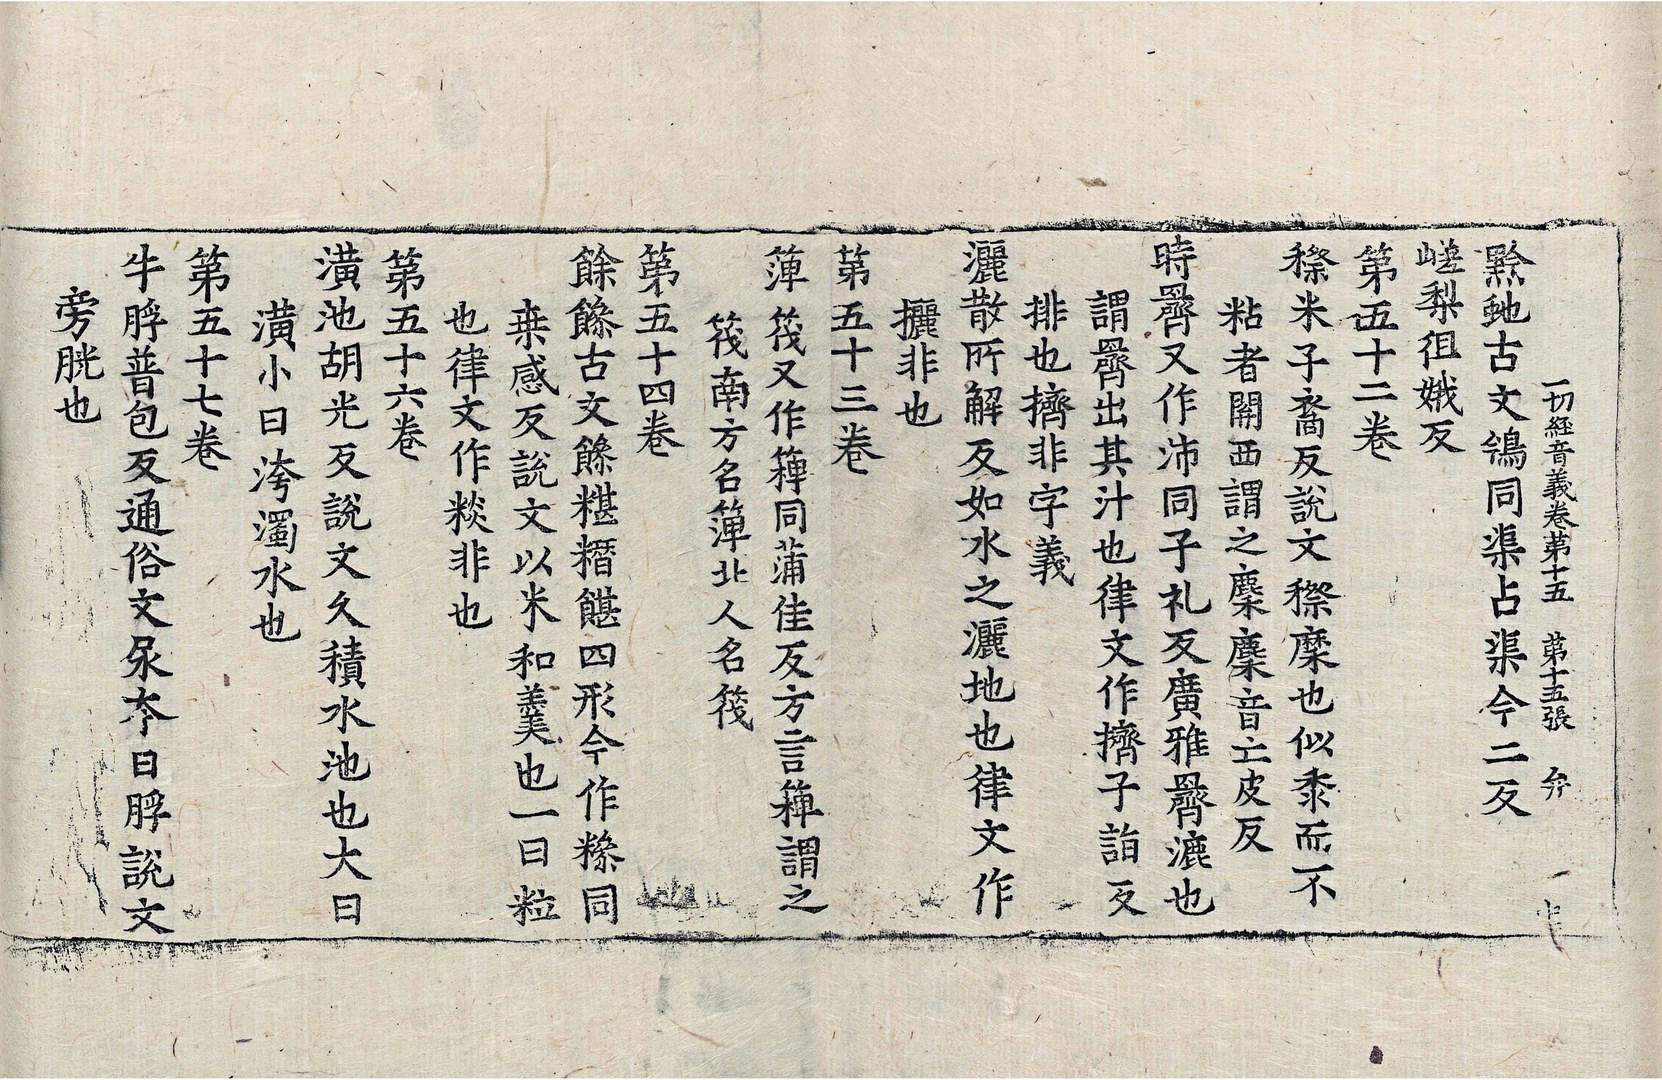 一切經音義卷第十五 第十五張 弁
黚虵古文鴿同渠占渠今二反
嵯梨徂娥反
第五十二卷
穄米子裔反說文穄穈也似黍而不
粘者關西謂之穈穈音亡皮反
時𦌺又作沛同子礼反廣雅𦌺漉也
謂𦌺出其汁也律文作擠子詣反
排也擠非字義
灑散所解反如水之灑地也律文作
攦非也
第五十三卷
箄筏又作簰同蒲佳反方言簰謂之
筏南方名箄北人名筏
第五十四卷
餘餯古文餯糂糣䭃四形今作糝同
桒感反說文以米和羹也一曰粒
也律文作糉非也
第五十六卷
潢池胡光反說文久積水池也大曰
潢小曰洿濁水也
第五十七卷
牛脬普包反通俗文尿夲曰脬說文
旁胱也